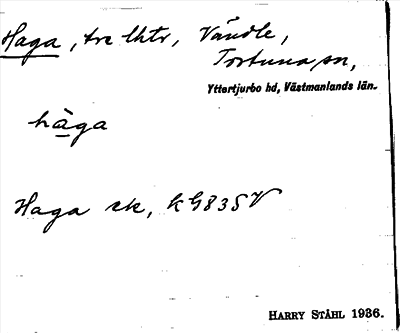 Haga, tre lhtr, Vändle,
Tortuna sn,
Yttertjurbo hd, Västmanlands län.
hàga
Haga sk, KG835V
HARRY STÅHL 1936.